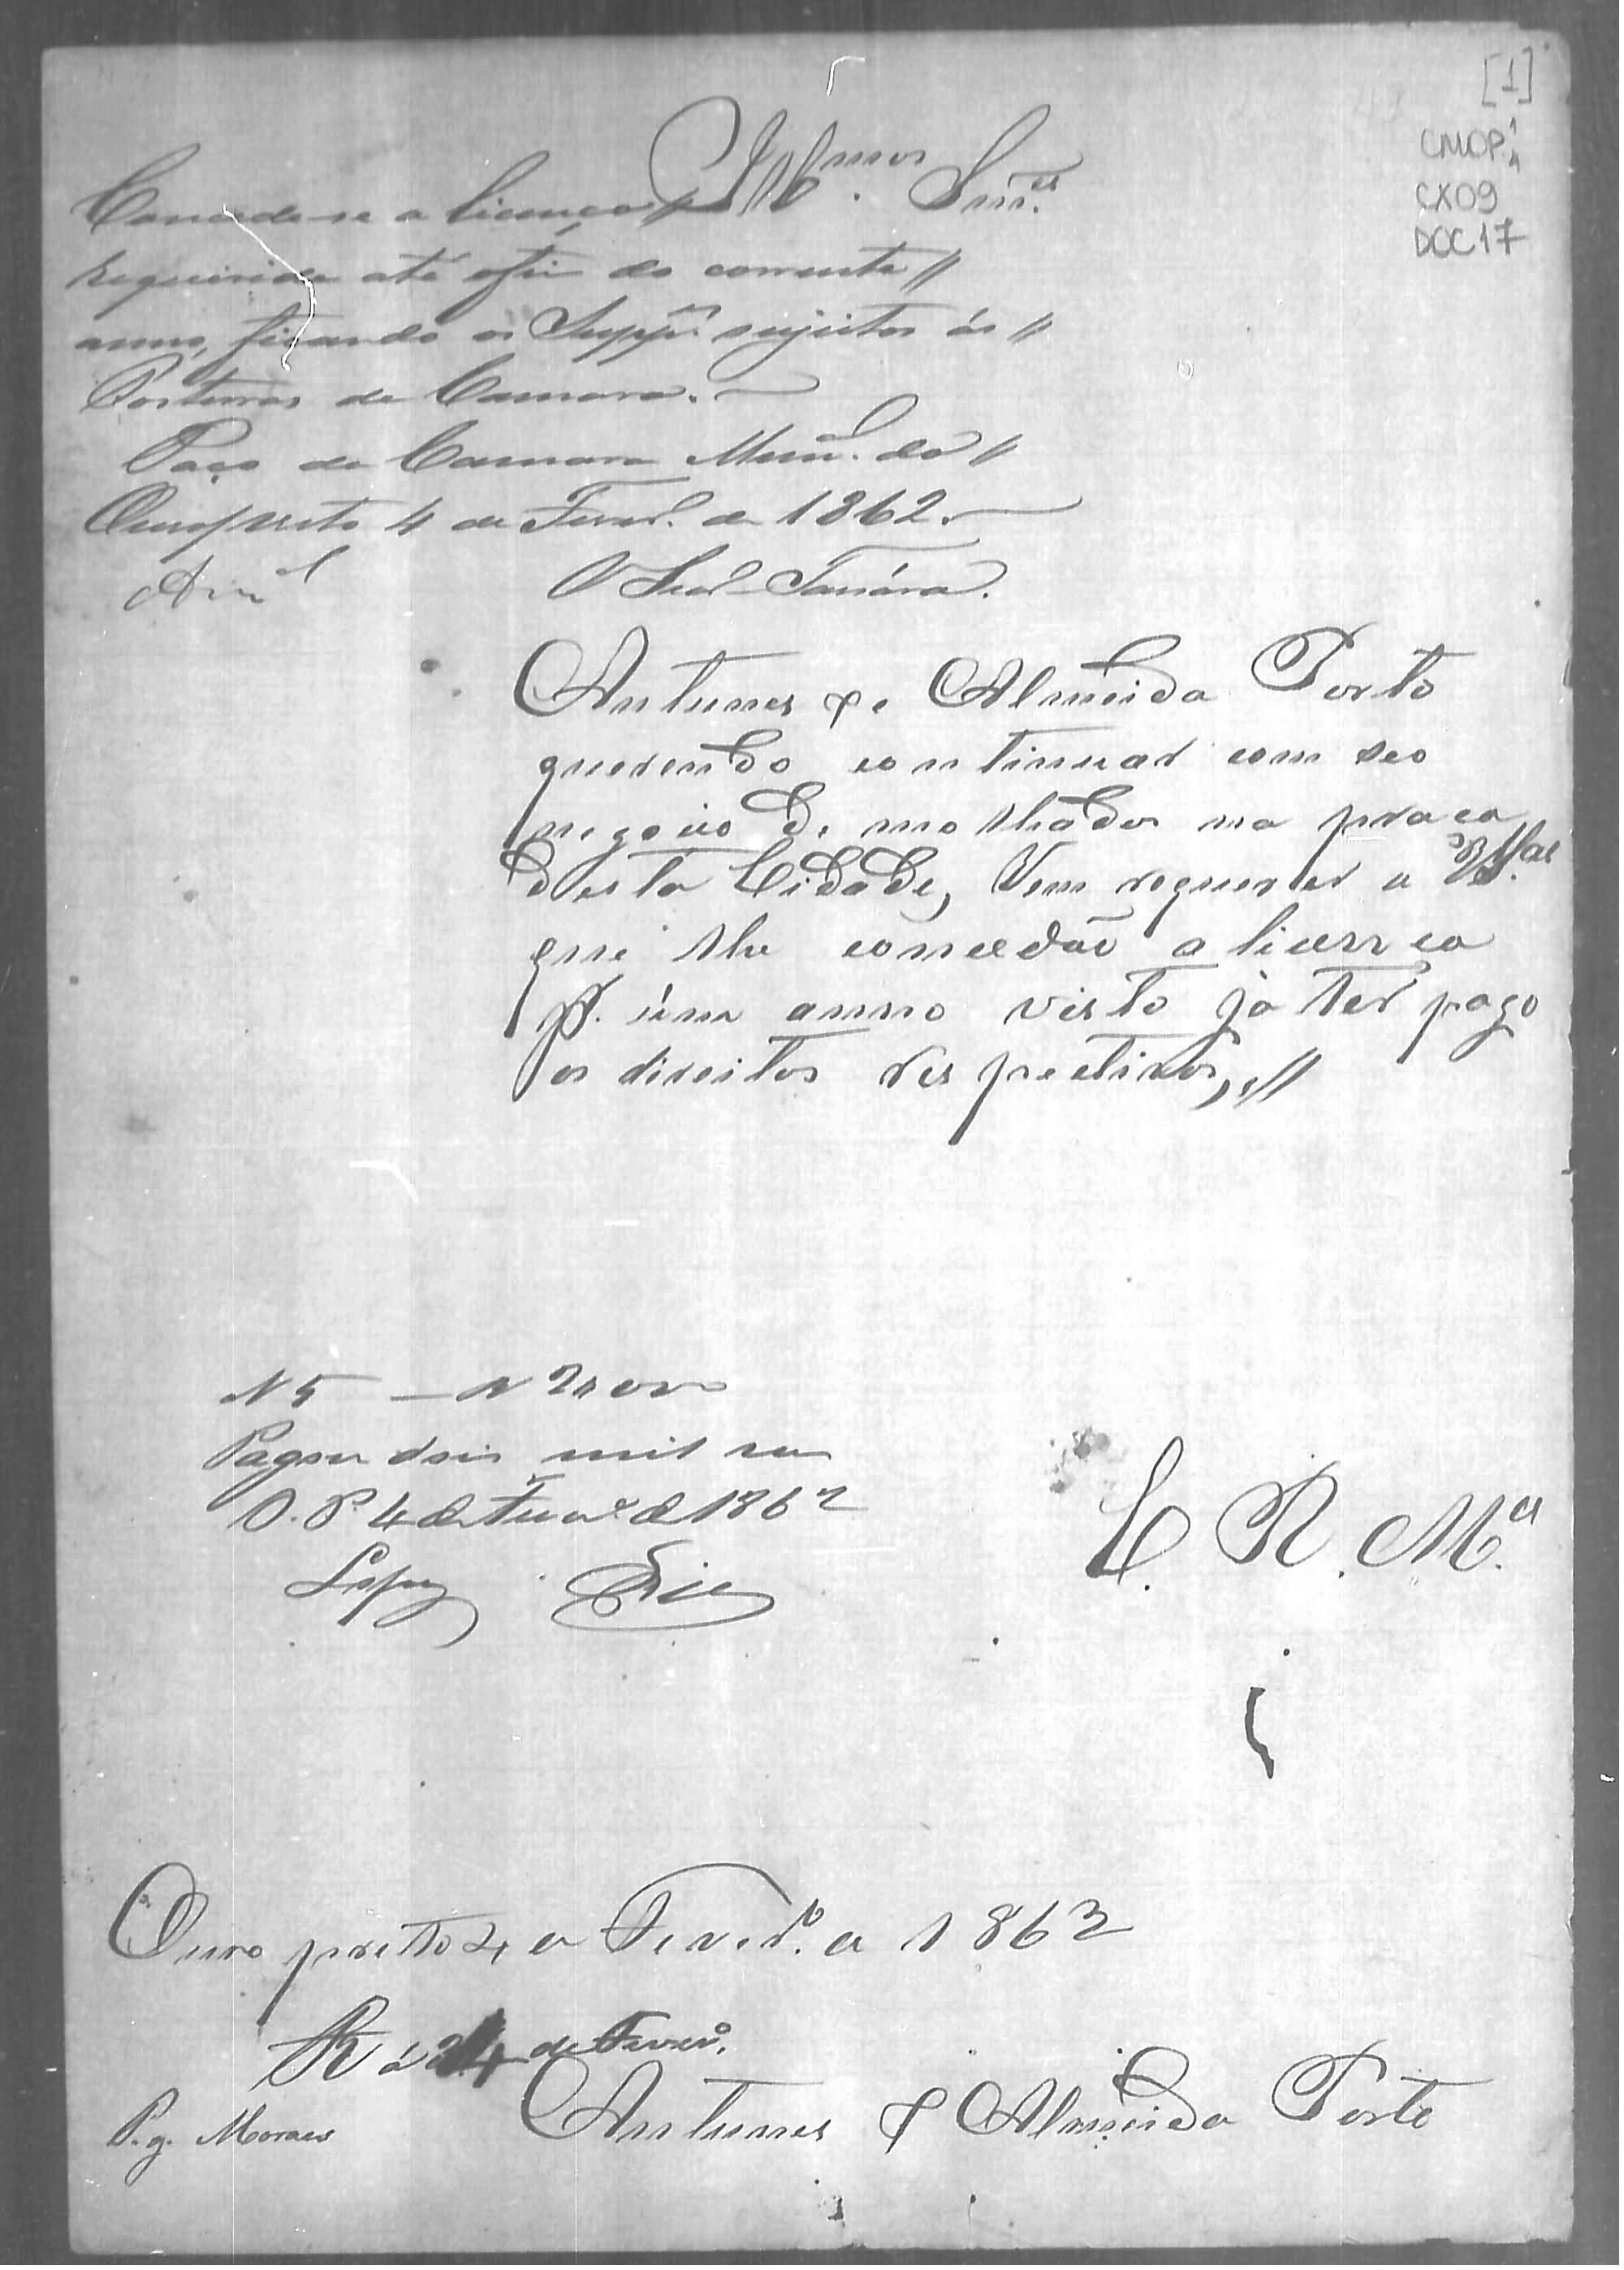 [1]
CMOP 1/4
CX09
DOC17
Illmos. Snr.es
Concede-se a licença //
requirida até o fim do corrente //
anno, ficando os Supp.es sujeitos ás //
Posturas da Camara.
Paço da Camara Mun.al do //
Ouro preto 4 de Fever.o de 1862.
O Secr.o
Antunes & Almeida Porto
querendo continuar com seo
negocio de molhados na praca
desta Cidade, Vem requerer a VV.Sas.
que lhe concedão a licenca
p.r úm anno visto já ter pago
os direitos respectivos, //
N 5 —
Pagou dois mil reis
O. P. 4 de Fever.o de 1862
Lopes
E. R. M.ce
Ouro pretto 4 a Fever.o a 1862
R á 4 de Fever.o
P. g. Moraes
Antunes & Almeida Porto